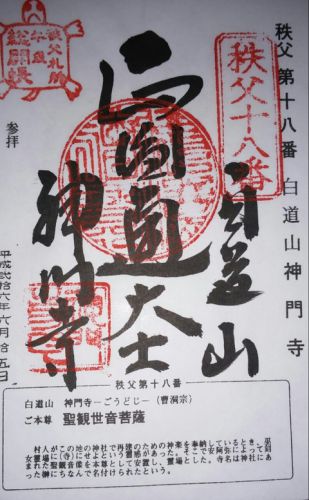 秩父第十八番 白道山神門寺
秩父十八番
白道山
正圓通大士
神門寺
秩父札所
午歳
総開帳
参拝
平成弐拾六年六月拾五日
秩父第十八番
白道山 神門寺―ごうどじ―(曹洞宗)
ご本尊 聖観世音菩薩
村人がこの地の神社で再建のための神楽を奉納しているとき、巫
女に(寺)にせよという霊感があった。そこで安阿弥によって刻
まれた聖観音像を本尊として安置し、霊場とした。寺名は神社にあっ
た榊にちなんで名付けられたという。